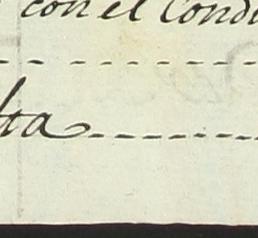 con el Cond
lta